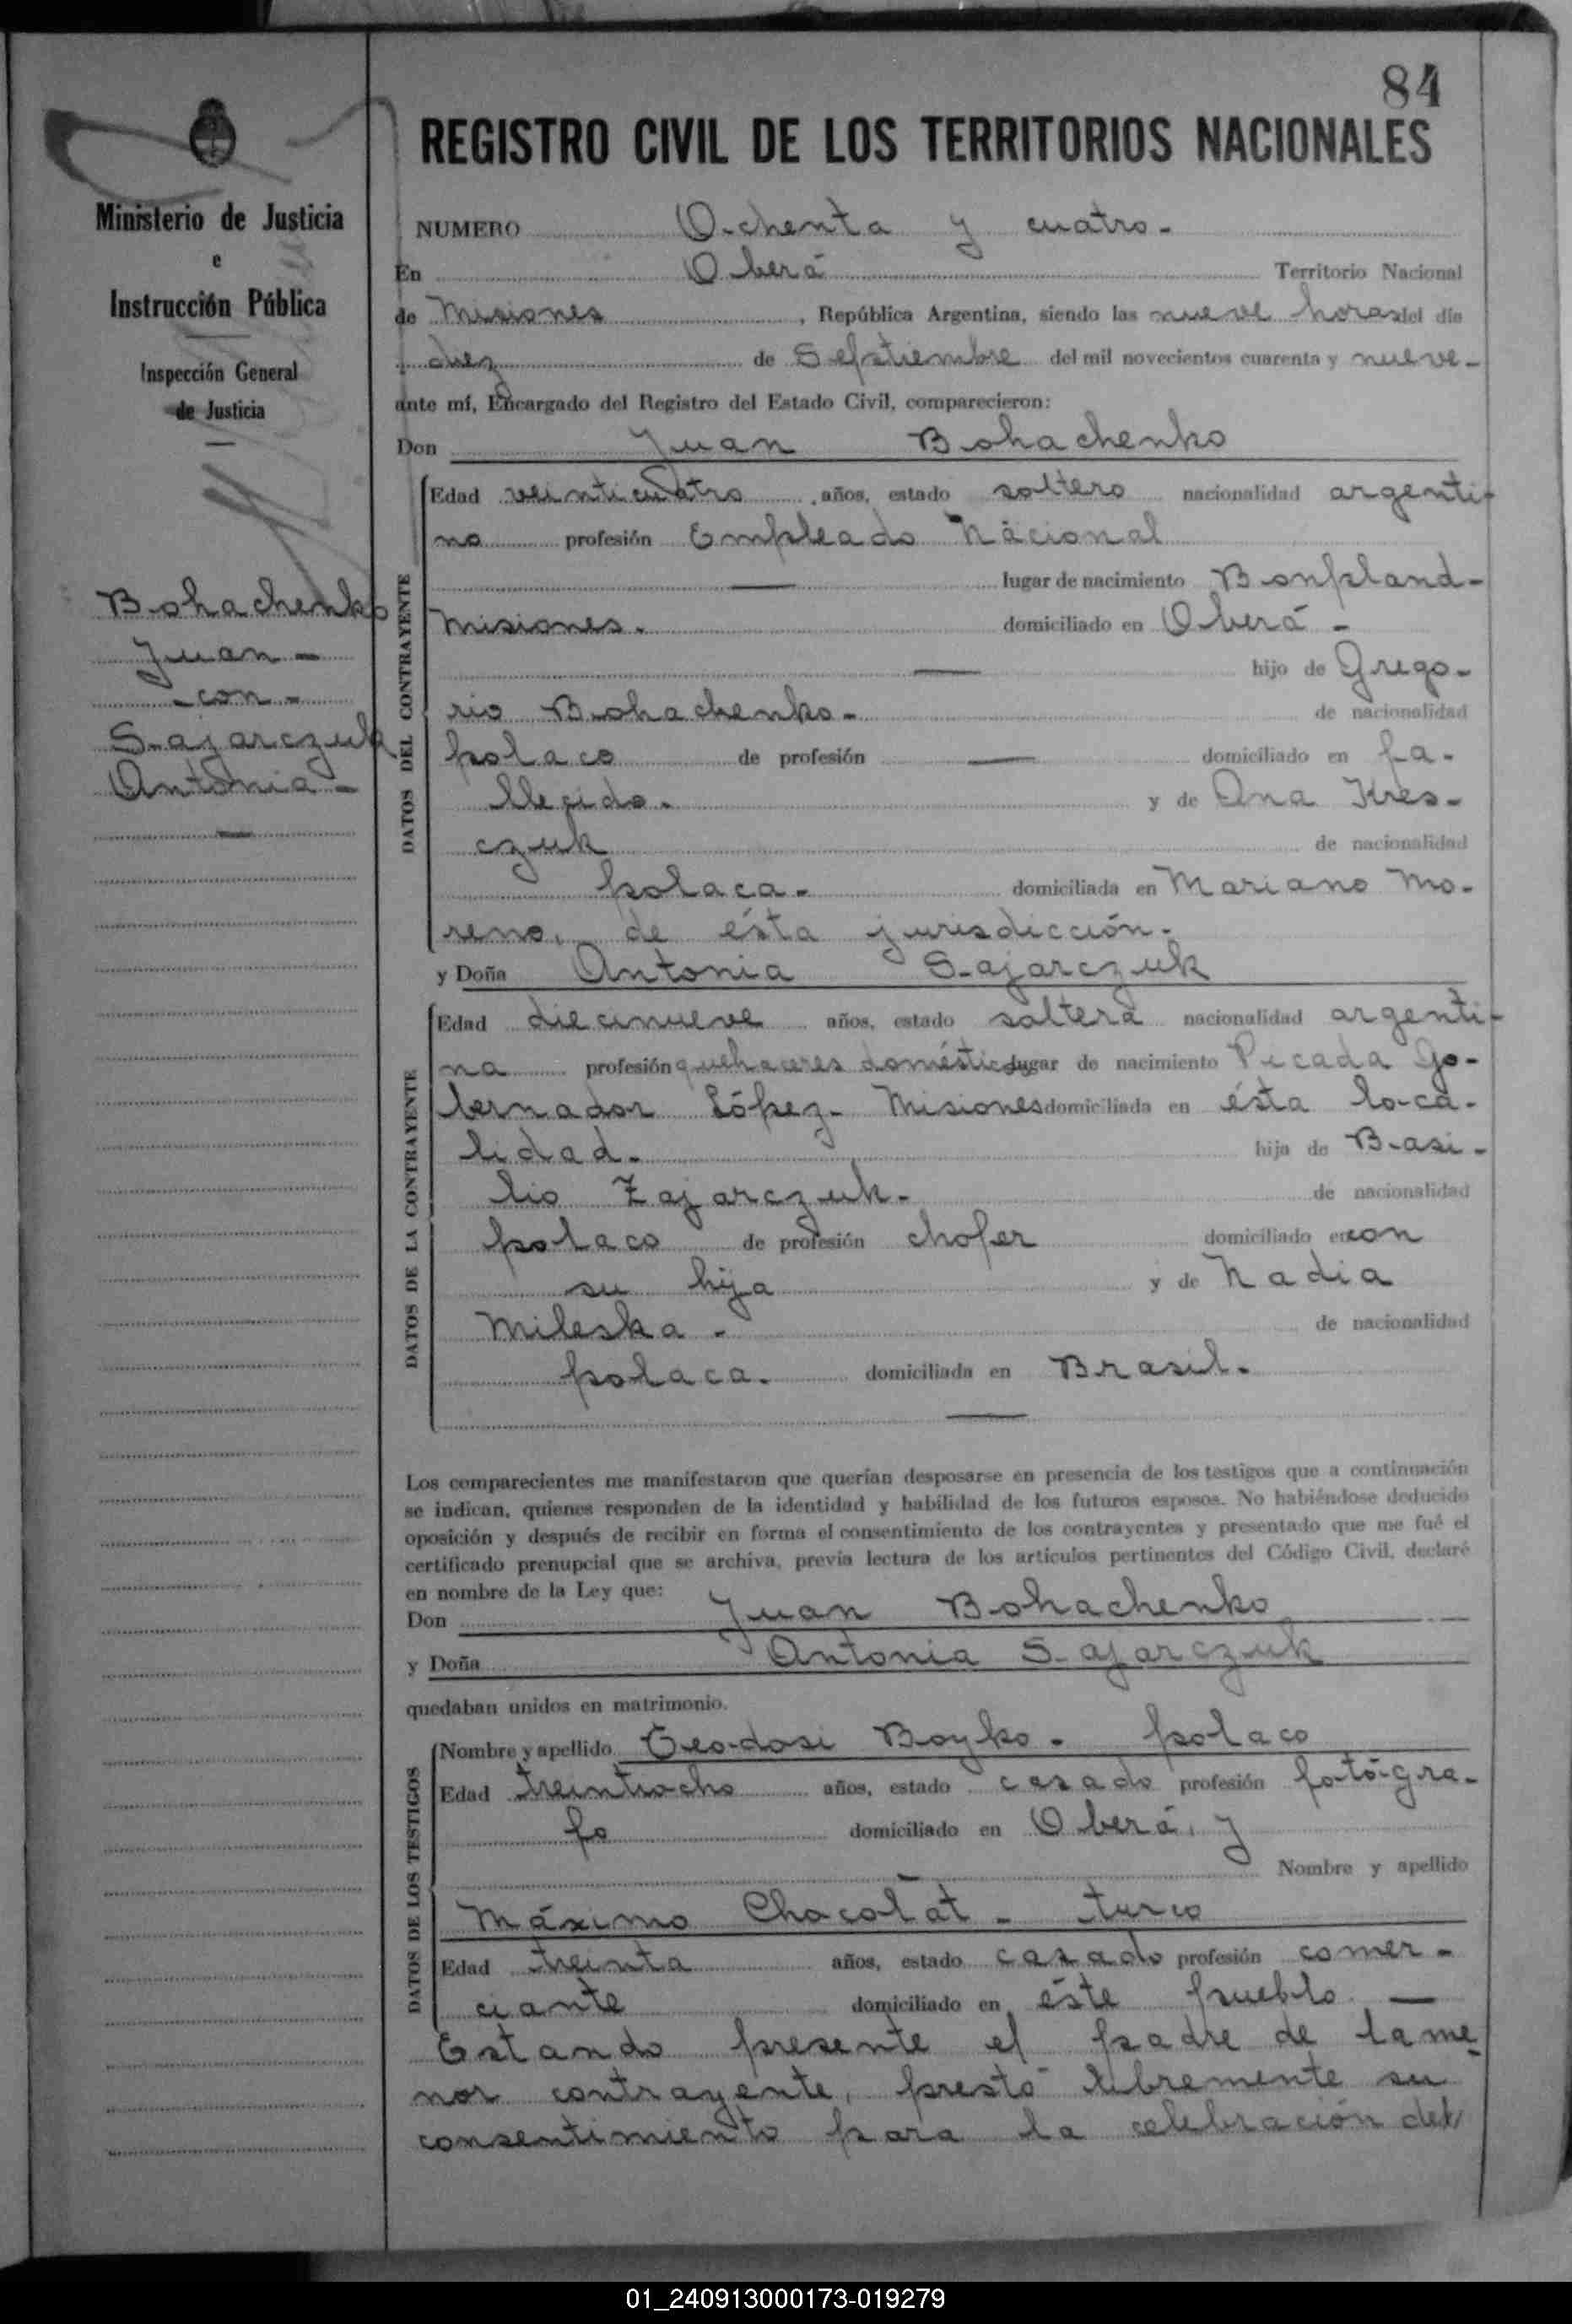 84
REGISTRO CIVIL DE LOS TERRITORIOS NACIONALES
Ministerio de Justicia
e
Instrucción Pública
Inspección General
de Justicia
Bohachenko
Juan -
- con -
Sajarczuk
Antonia -
NUMERO Ochenta y cuatro.
En Oberá Territorio Nacional
de Misiones, República Argentina, siendo las nueve horas del día
diez de Septiembre del mil novecientos cuarenta y nueve-
ante mí, Encargado del Registro del Estado Civil, comparecieron:
Don Juan Bohachenko
DATOS DEL CONTRAYENTE
Edad veinticuatro años, estado soltero nacionalidad argenti-
no profesión Empleado Nacional
lugar de nacimiento Bonpland-
Misiones. domiciliado en Oberá -
hijo de Grego-
rio Bohachenko. de nacionalidad
polaco de profesión — domiciliado en fa-
llecido. y de Ana Kres-
czuk de nacionalidad
polaca. domiciliada en Mariano Mo-
reno, de ésta jurisdicción.
y Doña Antonia Sajarczuk
DATOS DE LA CONTRAYENTE
Edad diecinueve años, estado soltera nacionalidad argenti-
na profesión quehaceres domésticos lugar de nacimiento Picada Go-
bernador López- Misiones domiciliada en ésta loca-
lidad. hija de Basi-
lio Zajarczuk. de nacionalidad
polaco de profesión chofer domiciliado en con
su hija y de Nadia
Mileska - de nacionalidad
polaca. domiciliada en Brasil.
Los comparecientes me manifestaron que querían desposarse en presencia de los testigos que a continuación
se indican, quienes responden de la identidad y habilidad de los futuros esposos. No habiéndose deducido
oposición y después de recibir en forma el consentimiento de los contrayentes y presentado que me fué el
certificado prenupcial que se archiva, previa lectura de los artículos pertinentes del Código Civil, declaré
en nombre de la Ley que:
Don Juan Bohachenko
y Doña Antonia Sajarczuk
quedaban unidos en matrimonio.
DATOS DE LOS TESTIGOS
Nombre y apellido Teodosi Boyko. polaco
Edad treintiocho años, estado casado profesión fotógra-
fo domiciliado en Oberá, y
Nombre y apellido
Máximo Chocolat - turco
Edad treinta años, estado casado profesión comer-
ciante domiciliado en éste pueblo. —
Estando presente el padre de la me
nor contrayente, prestó libremente su
consentimiento para la celebración del
01_240913000173-019279